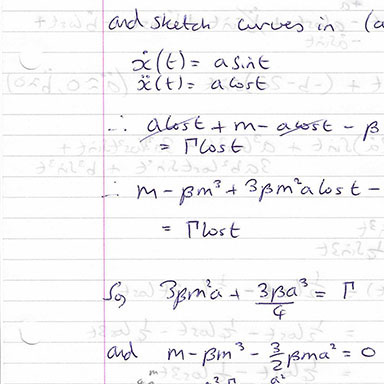 and sketch curves in (a
ẋ(t) = a sin t
ẍ(t) = a cos t
∴ a cos t + m - a cos t - β
= Γ cos t
∴ m - βm³ + 3βm²a cos t -
= Γ cos t
So 3βm²a + 3βa³/4 = Γ
and m - βm³ - 3/2 βma² = 0